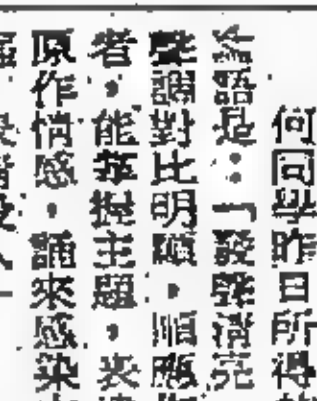 何同學昨日所得
評語是：「發聲清亮
聲調對比明顯，順應
者，能掌握主題，表
原作情感，誦來感染